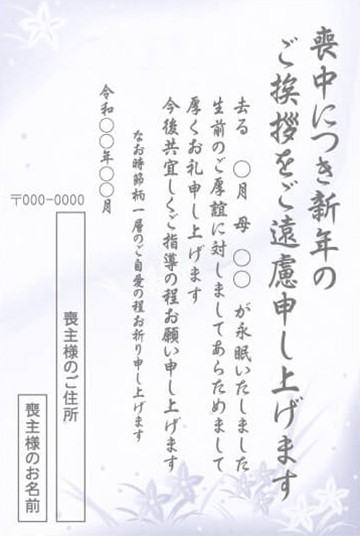 喪中につき新年の
ご挨拶をご遠慮申し上げます
去る　〇月　母　〇〇　が永眠いたしました
生前のご厚誼に対しましてあらためまして
厚くお礼申し上げます
今後共宜しくご指導の程お願い申し上げます
なお時節柄一層のご自愛の程お祈り申し上げます
令和〇〇年〇〇月
〒000-0000
喪主様のご住所
喪主様のお名前